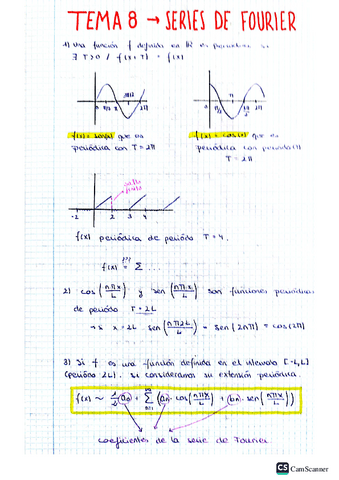 TEMA 8 → SERIES DE FOURIER
1) Una función f definida en ℝ es periódica si
∃ T>0 / f(x+T) = f(x)
0 π/2 π 3π/2 2π
0 π/2 π 3π/2 2π
f(x) = sen(x) que es
periódica con T = 2π
f(x) = cos(x) que es
periódica con periodo
T = 2π
-2 2 3 4
f(x) periódica de periodo T = 4.
f(x) = Σ ...
2) cos (nπx/L) y sen (nπx/L) son funciones periódicas
de periodo T = 2L
x = 2L sen (nπ2L/L) = sen (2nπ) = cos(2π)
3) Si f es una función definida en el intervalo [-L,L]
(periodo 2L). Si consideramos su extensión periódica.
f(x) ~ 1/2 (a₀) + Σ (aₙ · cos(nπx/L) + (bₙ) · sen(nπx/L))
n=1
coeficientes de la serie de Fourier
CS CamScanner